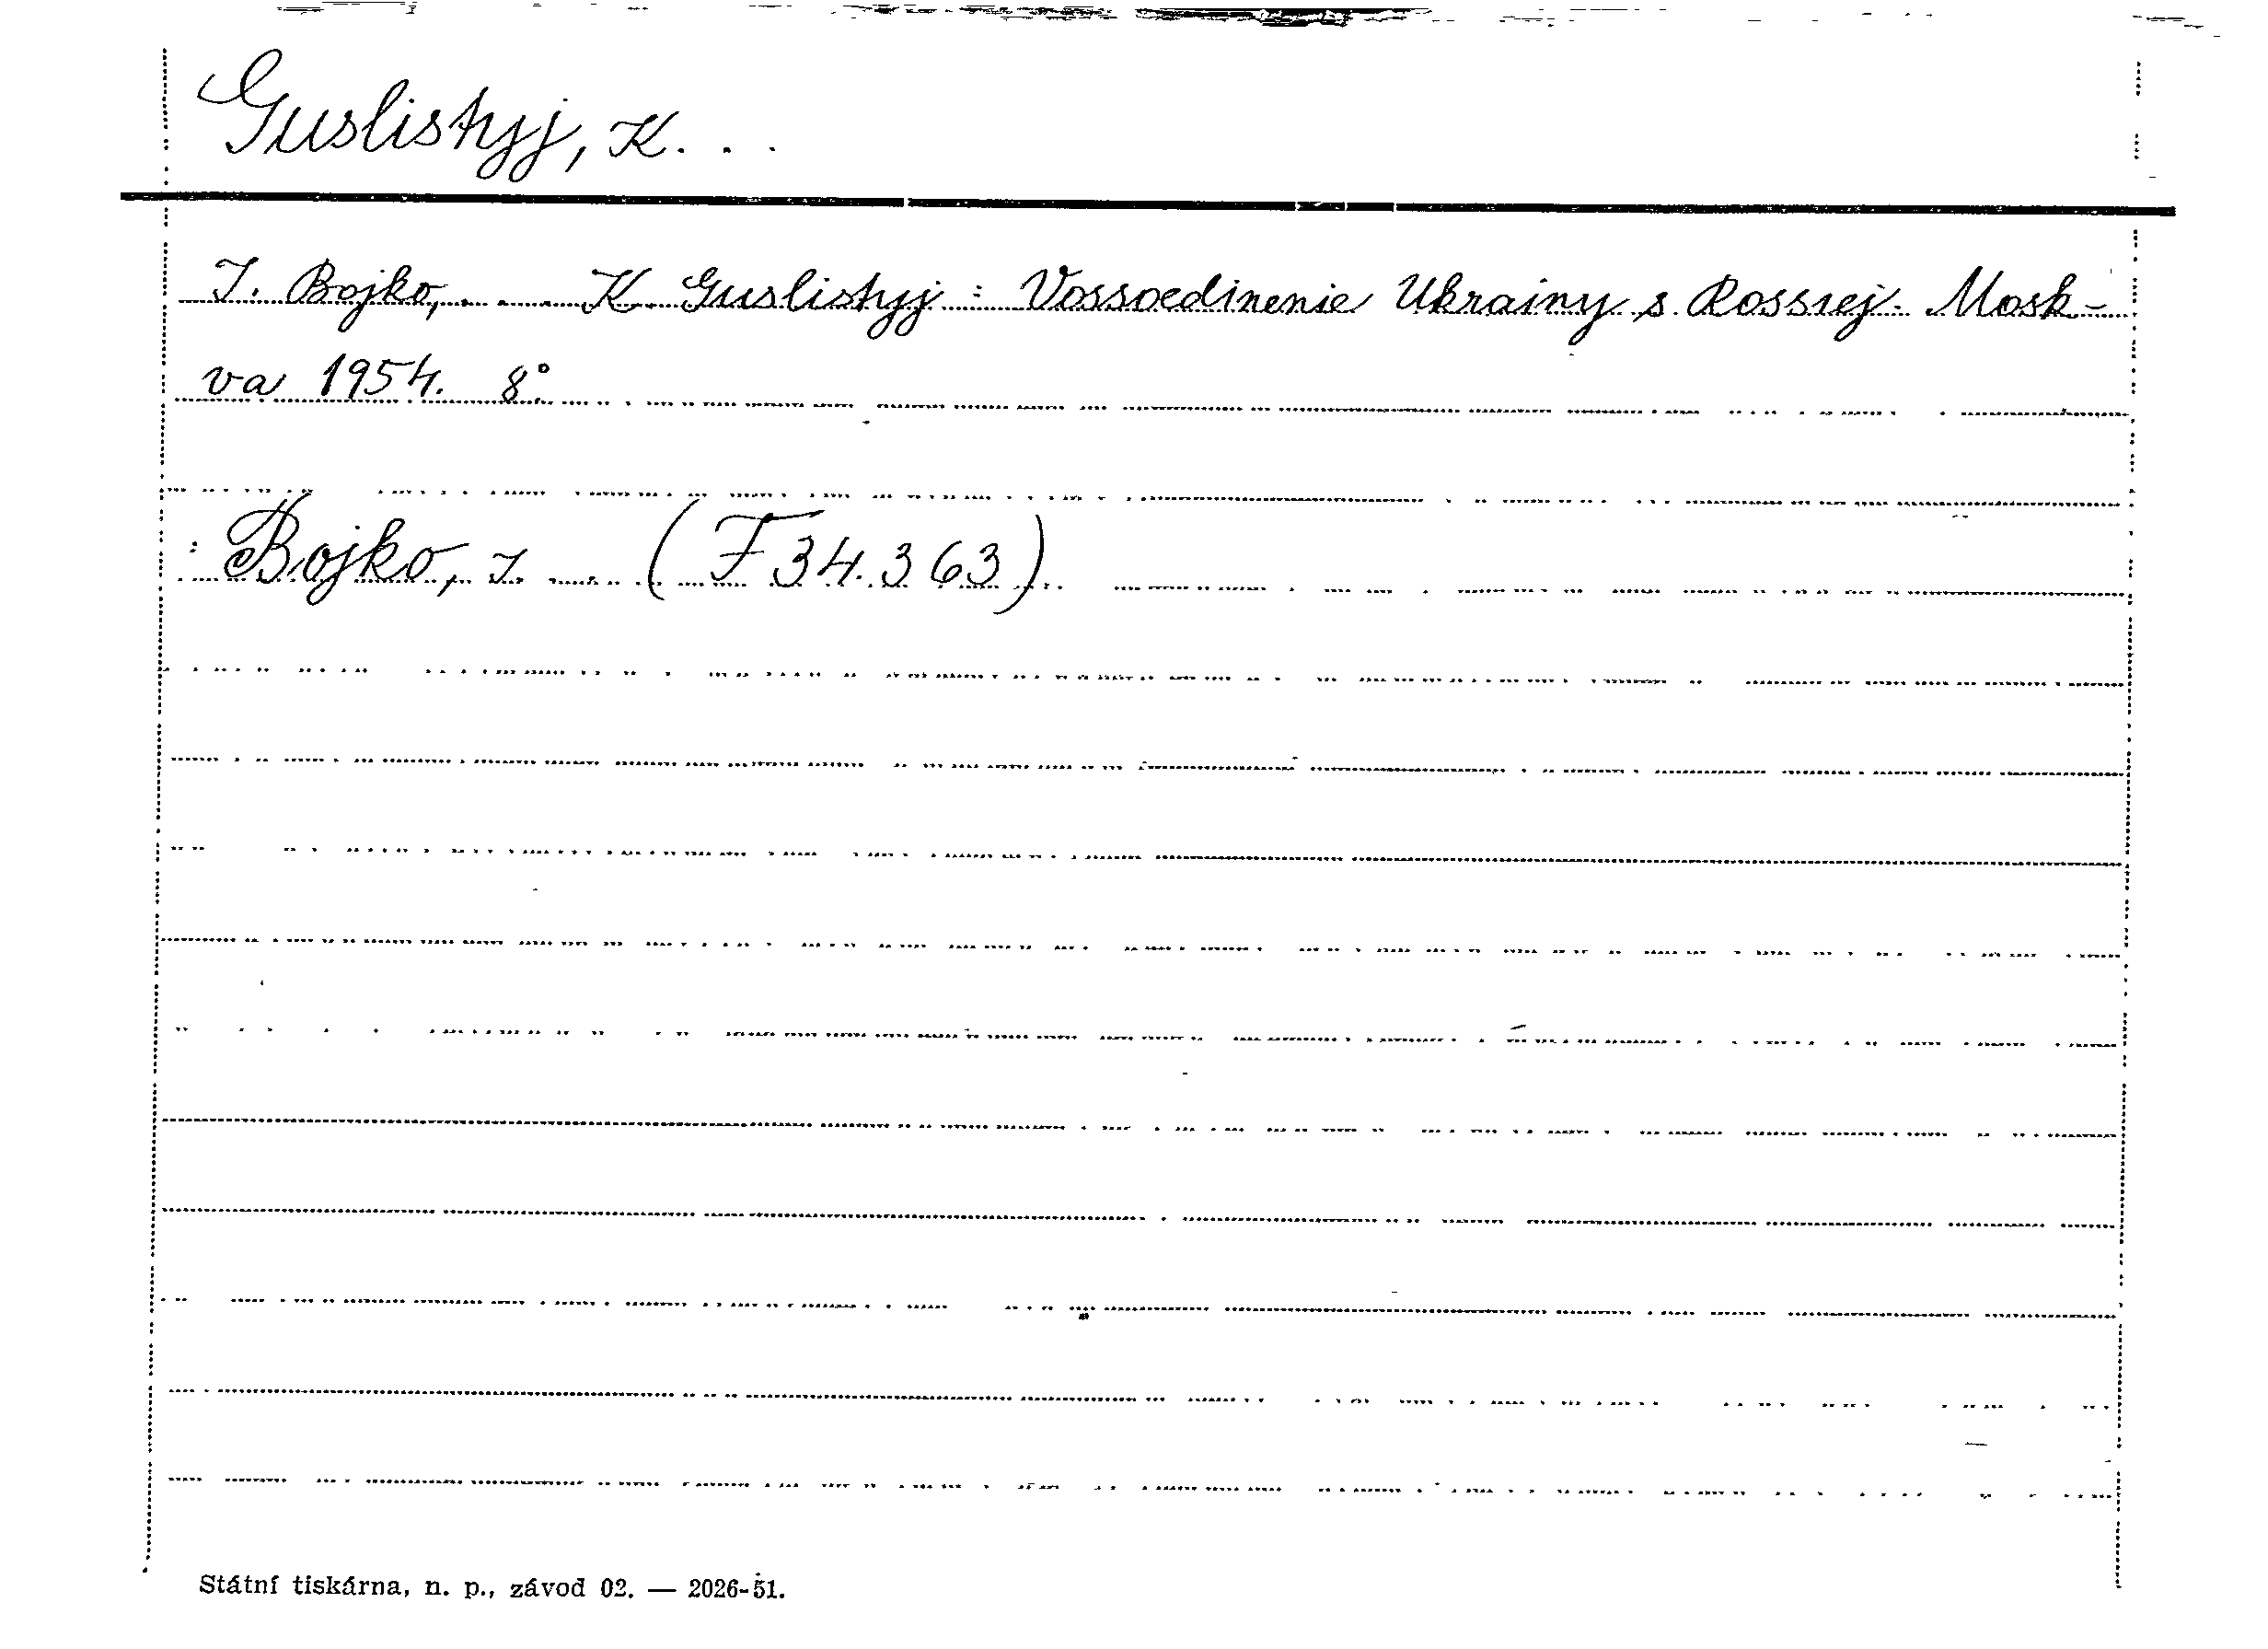 Guslistyj, K. . .
I. Bojko, . . . K. Guslistyj : Vossoedinenie Ukrainy s Rossiej. Mosk-
va 1954. 8°.
: Bojko, I. . . . (F 34.363)
Státní tiskárna, n. p., závod 02. — 2026-51.